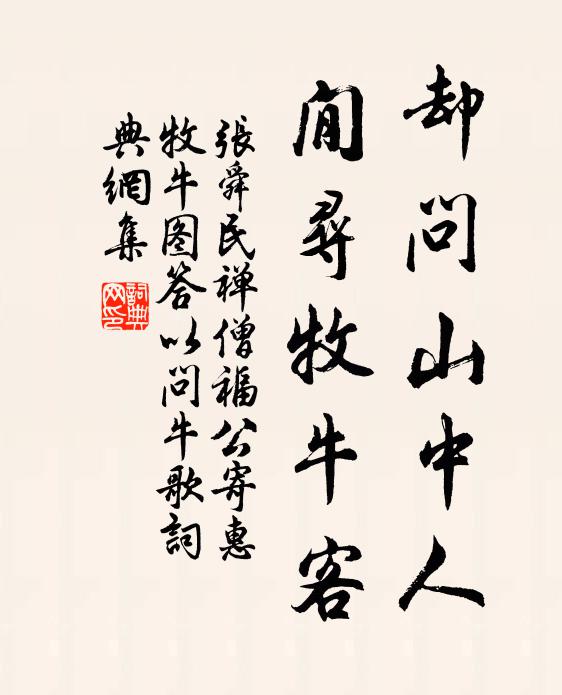 却問山中人
閒尋牧牛客
張舜民禅僧福公寄惠
牧牛图答以問牛歌詞
典網集
詞典網印